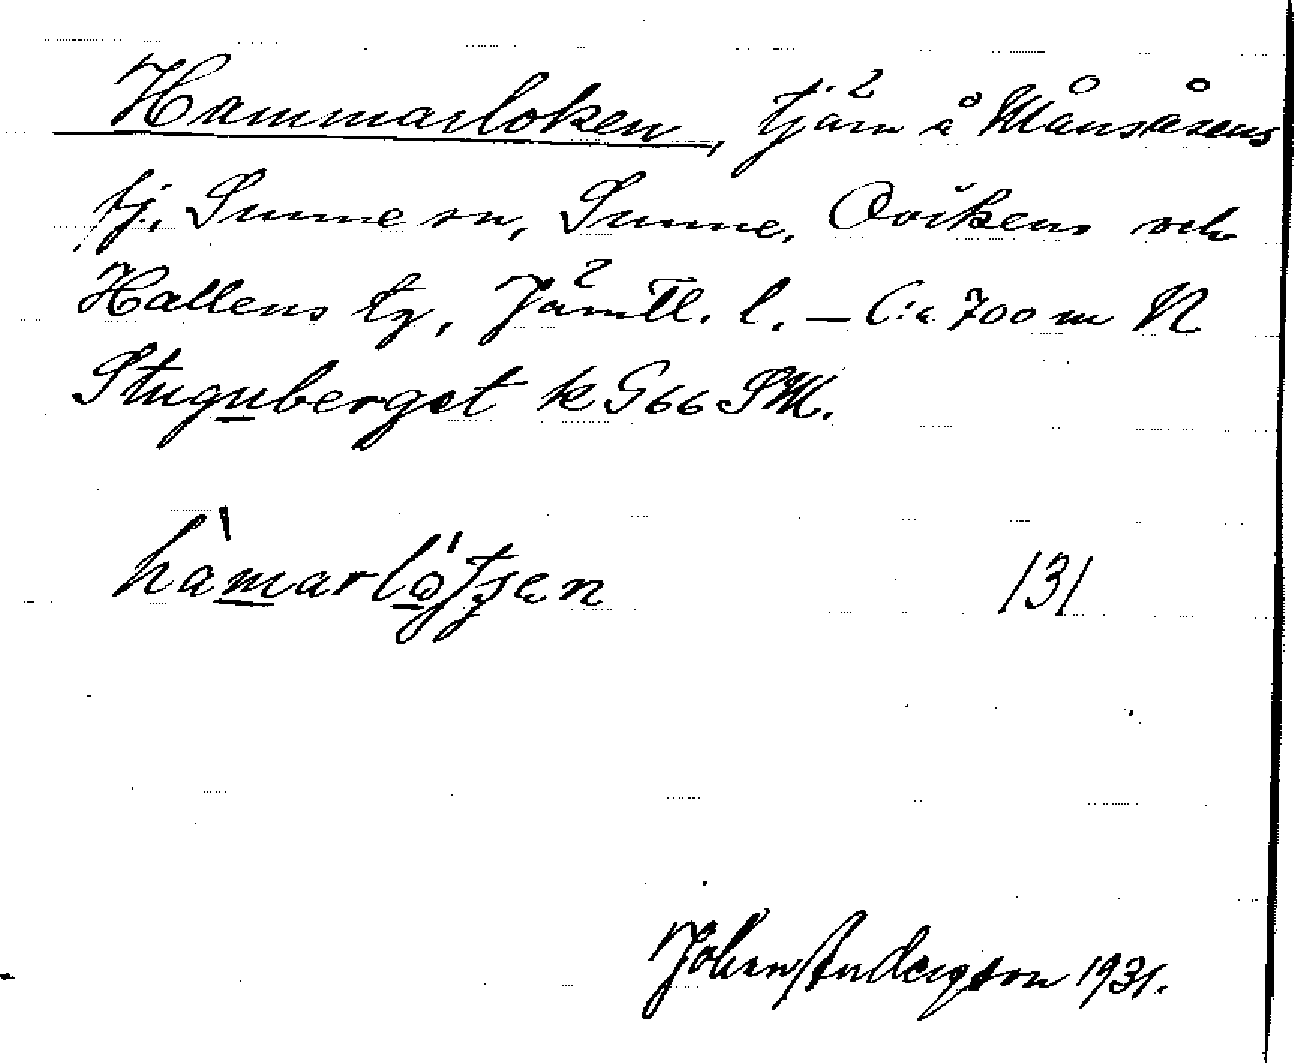 Hammarloken, tjärn å Månsåsens
fj. Sunne sn, Sunne, Ovikens och
Hallens tg, Jämtl. l. – C:a 700 m N
Stuguberget k G66 SM.
131
Johan Anderzson 1931.